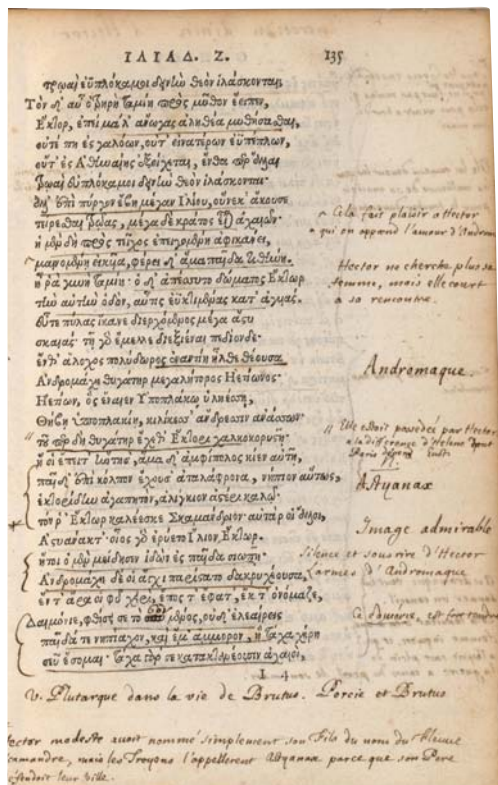 ΙΛΙΑΔ. Ζ. 135
τρωαὶ ἐϋπλόκαμοι δεινὴν θεὸν ἱλάσκονται;
Τὸν δ' αὖ ὀτρηρὴ ταμίη πρὸς μῦθον ἔειπεν,
Ἕκτορ, ἐπεὶ μάλ' ἄνωγας ἀληθέα μυθήσασθαι,
οὔτε πη ἐς γαλόων, οὔτ' εἰνατέρων ἐϋπέπλων,
οὔτ' ἐς Ἀθηναίης ἐξοίχεται, ἔνθα περ ἄλλαι
τρωαὶ ἐϋπλόκαμοι δεινὴν θεὸν ἱλάσκονται·
ἀλλ' ἐπὶ πύργον ἔβη μέγαν Ἰλίου, οὕνεκ' ἄκουσε
τείρεσθαι τρῶας, μέγα δὲ κράτος εἶναι ἀχαιῶν·
ἡ μὲν δὴ πρὸς τεῖχος ἐπειγομένη ἀφικάνει,
μαινομένῃ εἰκυῖα, φέρει δ' ἅμα παῖδα τιθήνη.
ἦ ῥα γυνὴ ταμίη· ὁ δ' ἀπέσσυτο δώματος Ἕκτωρ
τὴν αὐτὴν ὁδὸν, αὖτις ἐϋκτιμένας κατ' ἀγυιάς.
εὖτε πύλας ἵκανε διερχόμενος μέγα ἄστυ
σκαιάς· τῇ γὰρ ἔμελλε διεξιέναι πεδίονδε·
ἔνθ' ἄλοχος πολύδωρος ἐναντίη ἦλθε θέουσα
Ἀνδρομάχη θυγάτηρ μεγαλήτορος Ἠετίωνος·
Ἠετίων, ὃς ἔναιεν Ὑποπλάκῳ ὑληέσσῃ,
Θήβῃ ὑποπλακίῃ, κιλίκεσσ' ἄνδρεσσιν ἀνάσσων·
τοῦ περ δὴ θυγάτηρ ἔχεθ' Ἕκτορι χαλκοκορυστῇ·
ἥ οἱ ἔπειτ' ἤντησ', ἅμα δ' ἀμφίπολος κίεν αὐτῇ,
παῖδ' ἐπὶ κόλπον ἔχουσ' ἀταλάφρονα, νήπιον αὔτως,
ἑκτορίδην ἀγαπητὸν, ἀλίγκιον ἀστέρι καλῷ·
τόν ῥ' Ἕκτωρ καλέεσκε Σκαμάνδριον· αὐτὰρ οἱ ἄλλοι,
Ἀστυάνακτ'· οἶος γὰρ ἐρύετο Ἴλιον Ἕκτωρ.
ἤτοι ὁ μὲν μείδησεν ἰδὼν ἐς παῖδα σιωπῇ·
Ἀνδρομάχη δέ οἱ ἄγχι παρίστατο δακρυχέουσα,
ἔν τ' ἄρα οἱ φῦ χειρὶ, ἔπος τ' ἔφατ', ἔκ τ' ὀνόμαζε,
Δαιμόνιε, φθίσει σε τὸ σὸν μένος, οὐδ' ἐλεαίρεις
παῖδά τε νηπίαχον, καὶ ἔμ' ἄμμορον, ἣ τάχα χήρη
σεῦ ἔσομαι· τάχα γάρ σε κατακτανέουσιν ἀχαιοὶ,
I 4
Cela fait plaisir a Hector
qui on apprend l'amour d'Androm
Hector ne cherche plus sa
femme, mais elle court
a sa rencontre.
Andromaque.
Elle estoit possedée par Hector
a la difference d'Helene dont
Paris
Astyanax
Image admirable
Silence et sousrire d'Hector
Larmes d'Andromaque
Ce est fort tendre
v. Plutarque dans la vie de Brutus. Porcie et Brutus
Hector modeste avoit nommé simplement son Fils du nom du Fleuve
Scamandre, mais les Troyens l'appellerent Astyanax parce que son Pere
defendoit leur ville.